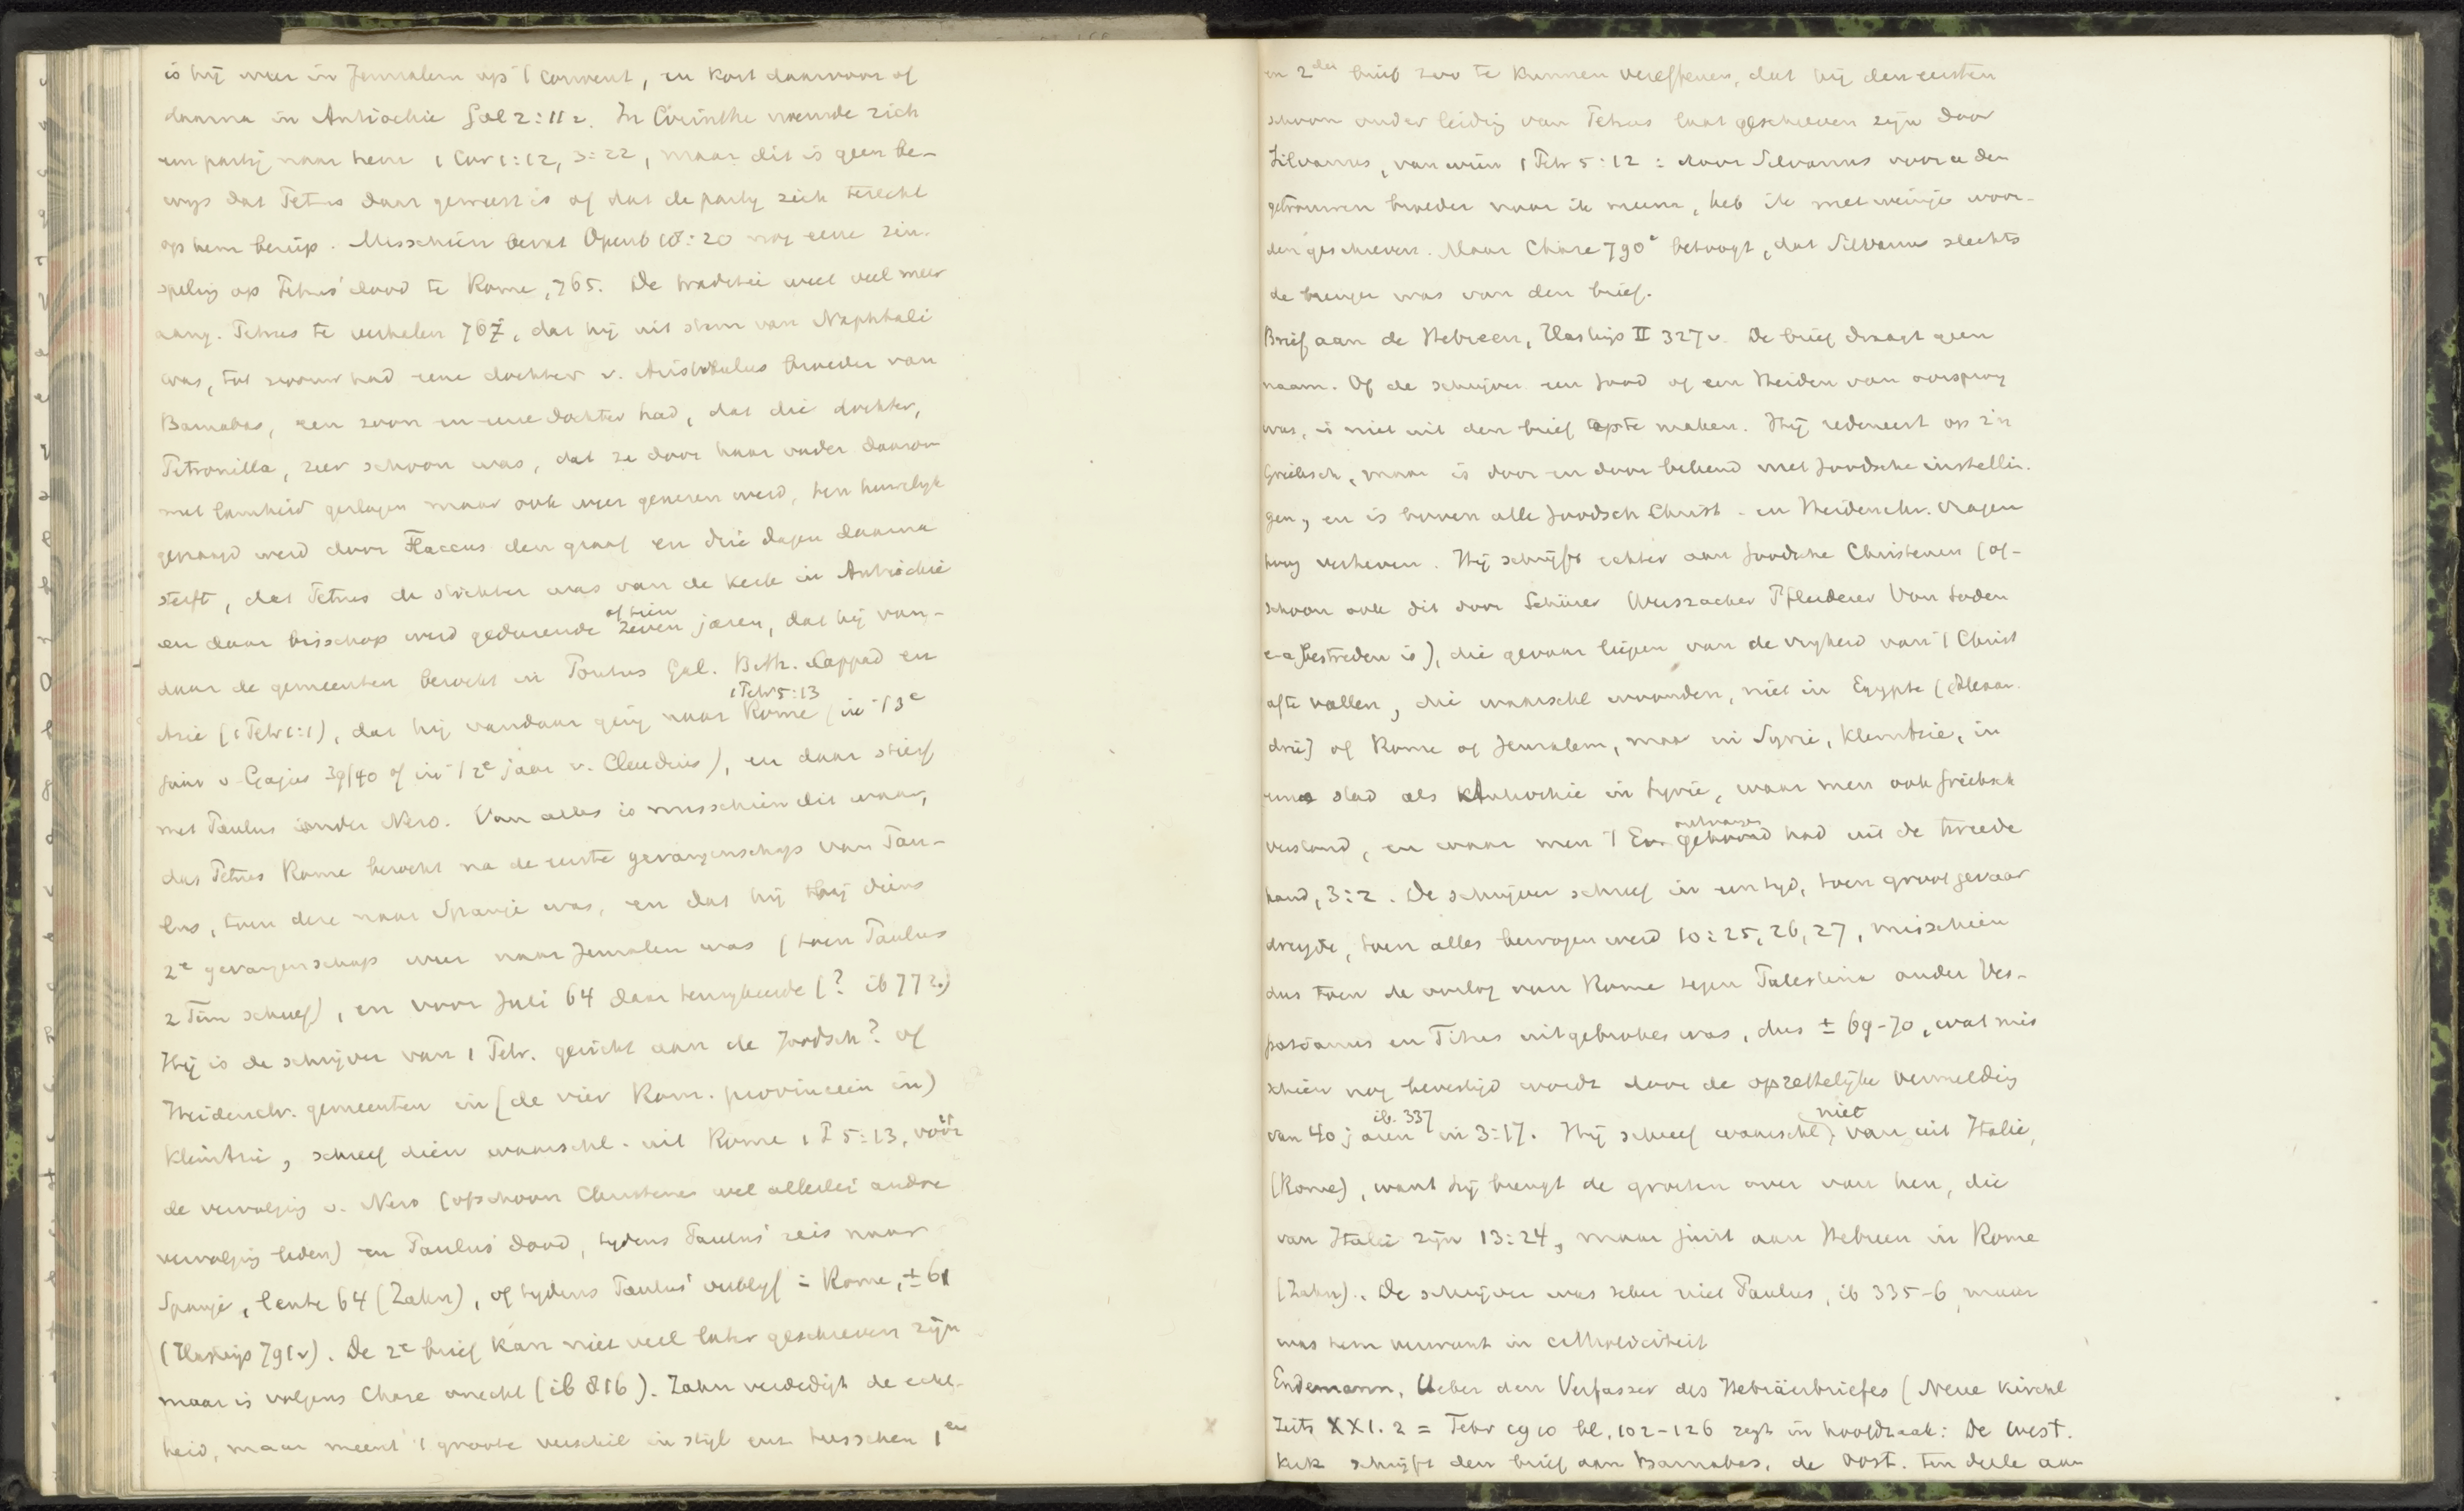 is hij weer in Jerusalem op 't convent, en kort daarvoor of
daarna in Antiochie Gal 2:11v. In Corinthe noemde zich
een partij naar hem 1 Cor 1:12, 3:22, maar dit is geen be-
wijs dat Petrus daar geweest is of dat de partij zich terecht
op hem beriep. Misschien bevat Openb 18:20 nog eene zin-
speling op Petrus' dood te Rome, 765. De traditie weet veel meer
aang. Petrus te verhalen 767, dat hij uit stam van Naphthali
was, tot vrouw had eene dochter v. Aristobulus broeder van
Barnabas, een zoon en eene dochter had, dat die dochter,
Petronilla, zeer schoon was, dat ze door haar vader daarom
met lamheid geslagen maar ook weer genezen werd, ten huwelijk
gevraagd werd door Flaccus den graaf en drie dagen daarna
sterft, dat Petrus de stichter was van de kerk in Antiochie
en daar bisschop werd gedurende zeven of tien jaren, dat hij van-
daar de gemeenten bezocht in Pontus Gal. Bith. Cappad en
Azie (1 Petr 1:1), dat hij vandaar ging naar Rome 1 Petr 5:13 (in 't 3e
jaar v. Gajus 39/40 of in 't 2e jaar v. Claudius), en daar stierf
met Paulus onder Nero. Van alles is misschien dit waar,
dat Petrus Rome bezocht na de eerste gevangenschap van Pau-
lus, toen deze naar Spanje was, en dat hij bij diens
2e gevangenschap weer naar Jerusalem was (toen Paulus
2 Tim schreef), en voor Juli 64 daar terugkeerde (? ib 772.)
Hij is de schrijver van 1 Petr. gericht aan de Joodsch? of
Heidenchr. gemeenten in (de vier Rom. provincien in)
KleinAzie, schreef dien waarschl. uit Rome 1 P 5:13, vóór
de vervolging v. Nero (ofschoon Christenen wel allerlei andre
vervolging leden) en Paulus' dood, tijdens Paulus' reis naar
Spanje, lente 64 (Zahn), of tijdens Paulus' verblijf in Rome, ± 61
(Haskijs 791v). De 2e brief kan niet veel later geschreven zijn
maar is volgens Chase onecht (ib 816). Zahn verdedigt de echt-
heid, maar meent 't groote verschil in stijl enz. tusschen 1en
en 2den brief zoo te kunnen vereffenen, dat hij den eersten
schoon onder leiding van Petrus laat geschreven zijn door
Silvanus, van wien 1 Petr 5:12: door Silvanus voor u den
getrouwen broeder naar ik meene, heb ik met weinige woor-
den geschreven. Maar Chase 790a betoogt, dat Silvanus slechts
de brenger was van den brief.
Brief aan de Hebreen, Haskijs II 327v. De brief draagt geen
naam. Of de schrijver een Jood of een Heiden van oorsprong
was, is niet uit den brief op te maken. Hij redeneert op z'n
Grieksch, maar is door en door bekend met Joodsche instellin-
gen, en is boven alle Joodsch Christ- en Heidenchr. vragen
hoog verheven. Hij schrijft echter aan Joodsche Christenen (of-
schoon ook dit door Schürer Weiszacker Pfleiderer Von Soden
e-a bestreden is), die gevaar liepen van de vrijheid van 't Christ
af te vallen, die waarschl woonden, niet in Egypte (Alexan-
drië) of Rome of Jerusalem, maar in Syrie, KleinAzie, in
eene stad als Antiochie in Syrie, waar men ook Grieksch
verstond, en waar men 't Ev. gehoord ontvangen had uit de tweede
hand, 3:2. De schrijver schreef in een tijd, toen groot gevaar
dreigde, toen alles bewogen werd 10:25, 26, 27, misschien
dus toen de oorlog van Rome tegen Palestina onder Ves-
pasianus en Titus uitgebroken was, dus ± 69-70, wat mis
schien nog bevestigd wordt door de opzettelijke vermelding
van 40 jaren ib. 337 in 3:17. Hij schreef waarschl niet van uit Italie,
(Rome), want hij brengt de groeten over van hen, die
van Italië zijn 13:24, maar juist aan Hebreen in Rome
(Zahn). De schrijver was zeker niet Paulus, ib 335-6, maar
was hem verwant in catholiciteit
Endemann, Ueber den Verfasser des Hebräerbriefes (Neue kirchl
Zeits XXI. 2 = Febr 1910 bl. 102-126 zegt in hoofdzaak: De West.
kerk schrijft den brief aan Barnabas, de Oost. ten deele aan